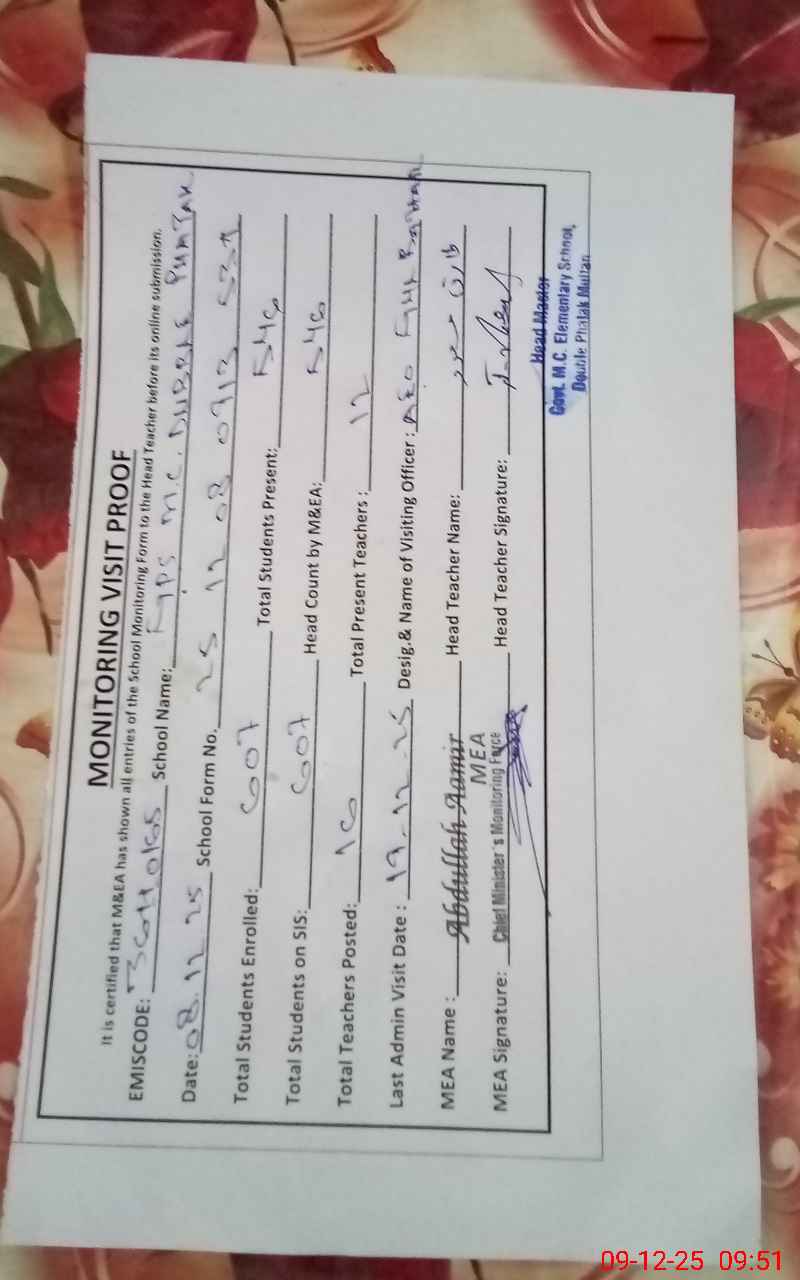 MONITORING VISIT PROOF
It is certified that M&EA has shown all entries of the School Monitoring Form to the Head Teacher before its online submission.
EMISCODE: School Name: M.C. DUBBLE PHATAK
Date: 08.12.25 School Form No. 25 12 08 0713
Total Students Enrolled: 607 Total Students Present: 546
Total Students on SIS: 607 Head Count by M&EA: 546
Total Teachers Posted: 16 Total Present Teachers: 12
Last Admin Visit Date: Desig.& Name of Visiting Officer: AEO
MEA Name: Abdullah Aamir Head Teacher Name: طارق
MEA
MEA Signature: Chief Minister's Monitoring Force Head Teacher Signature:
Head Master
Govt. M.C. Elementary School,
Double Phatak Multan
09-12-25 09:51